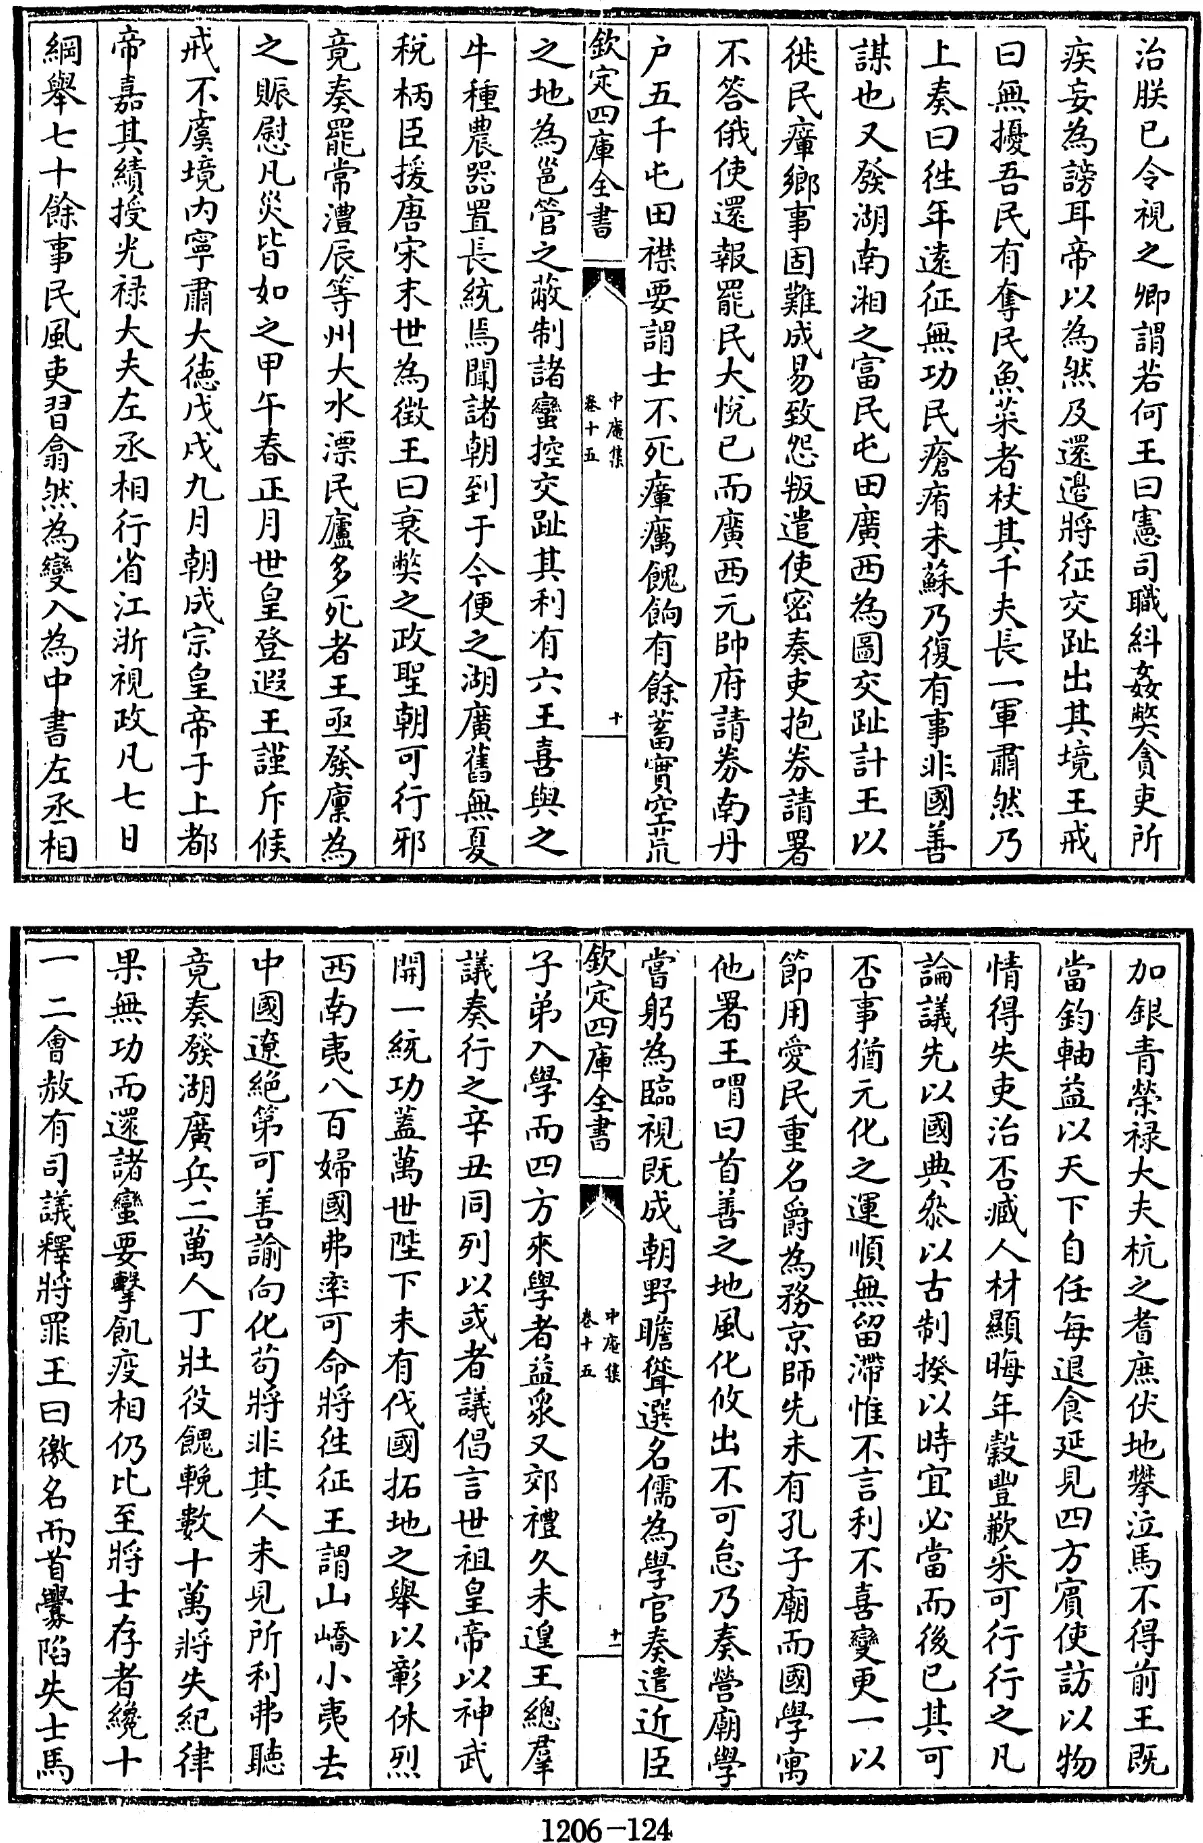 治朕已令視之卿謂若何王曰憲司職糾姦弊貪吏所
疾妄為謗耳帝以為然及還邉將征交趾出其境王戒
曰無擾吾民有奪民魚菜者杖其千夫長一軍肅然乃
上奏曰徃年逺征無功民瘡痏未蘇乃復有事非國善
謀也又發湖南湘之富民屯田廣西為圖交趾計王以
徙民瘴鄉事固難成易致怨叛遣使密奏吏抱券請署
不答俄使還報罷民大悅已而廣西元帥府請券南丹
户五千屯田襟要謂士不死瘴癘餽餉有餘蓄實空荒
欽定四庫全書
中庵集
卷十五
十
之地為邕管之蔽制諸蠻控交趾其利有六王喜與之
牛種農器置長統焉聞諸朝到于今便之湖廣舊無夏
税柄臣援唐宋末世為徵王曰衰弊之政聖朝可行邪
竟奏罷常澧辰等州大水漂民廬多死者王亟發廩為
之賑慰凡災皆如之甲午春正月世皇登遐王謹斥候
戒不虞境内寧肅大徳戊戌九月朝成宗皇帝于上都
帝嘉其績授光禄大夫左丞相行省江浙視政凡七日
綱舉七十餘事民風吏習翕然為變入為中書左丞相
加銀青榮禄大夫杭之耆庶伏地攀泣馬不得前王既
當鈞軸益以天下自任每退食延見四方賓使訪以物
情得失吏治否臧人材顯晦年榖豐歉采可行行之凡
論議先以國典叅以古制揆以時宜必當而後已其可
否事猶元化之運順無留滯惟不言利不喜變更一以
節用愛民重名爵為務京師先未有孔子廟而國學寓
他署王喟曰首善之地風化攸出不可怠乃奏營廟學
嘗躬為臨視既成朝野瞻聳選名儒為學官奏遣近臣
欽定四庫全書
中庵集
卷十五
十一
子弟入學而四方來學者益衆又郊禮久未遑王總羣
議奏行之辛丑同列以或者議倡言世祖皇帝以神武
開一統功蓋萬世陛下未有伐國拓地之舉以彰休烈
西南夷八百婦國弗率可命將徃征王謂山嶠小夷去
中國遼絶第可善諭向化茍將非其人未見所利弗聽
竟奏發湖廣兵二萬人丁壯役餽輓數十萬將失紀律
果無功而還諸蠻要擊飢疫相仍比至將士存者纔十
一二會赦有司議釋將罪王曰徼名而首釁陷失士馬
1206-124